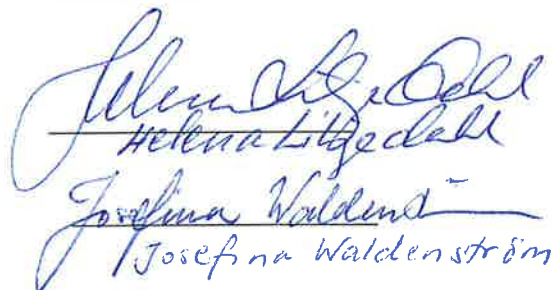 Helena Liljedahl
Helena Liljedahl
Josefina Waldenström
Josefina Waldenström